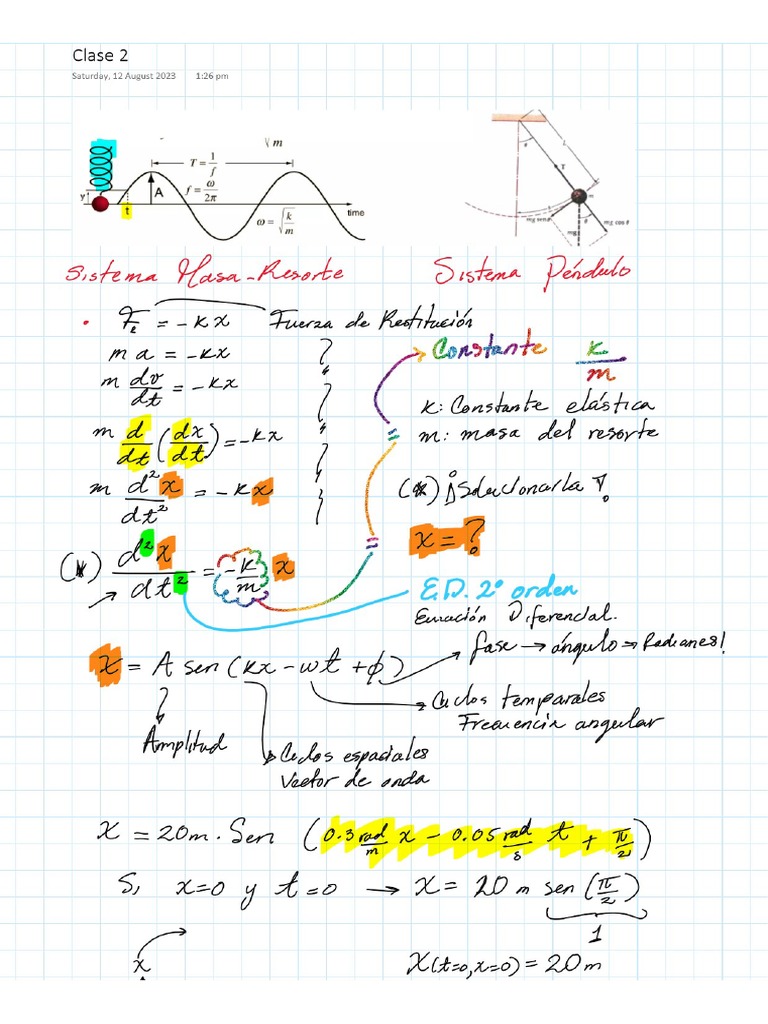 Clase 2
Saturday, 12 August 2023 1:26 pm
√m
T = 1/f
f = ω/2π
ω = √(k/m)
y
A
t
time
θ
L
T
m
mg senθ
mg cos θ
mg
θ
Sistema Masa-Resorte
Sistema Péndulo
• Fe = -kx Fuerza de Restitución
m a = -kx
m dv/dt = -kx
m d/dt (dx/dt) = -kx
m d²x/dt² = -kx
(*) d²x/dt² = -k/m x
Constante k/m
k: Constante elástica
m: masa del resorte
(*) ¡Solucionarla!
x = ?
E.D. 2° orden
Ecuación Diferencial.
x = A sen (kx - wt + ϕ)
fase → ángulo → Radianes!
Ciclos temporales
Frecuencia angular
Amplitud
Ciclos espaciales
Vector de onda
X = 20m. Sen (0.3 rad/m x - 0.05 rad/s t + π/2)
Si x=0 y t=0 → X = 20 m sen (π/2)
1
x
X(t=0,x=0) = 20m